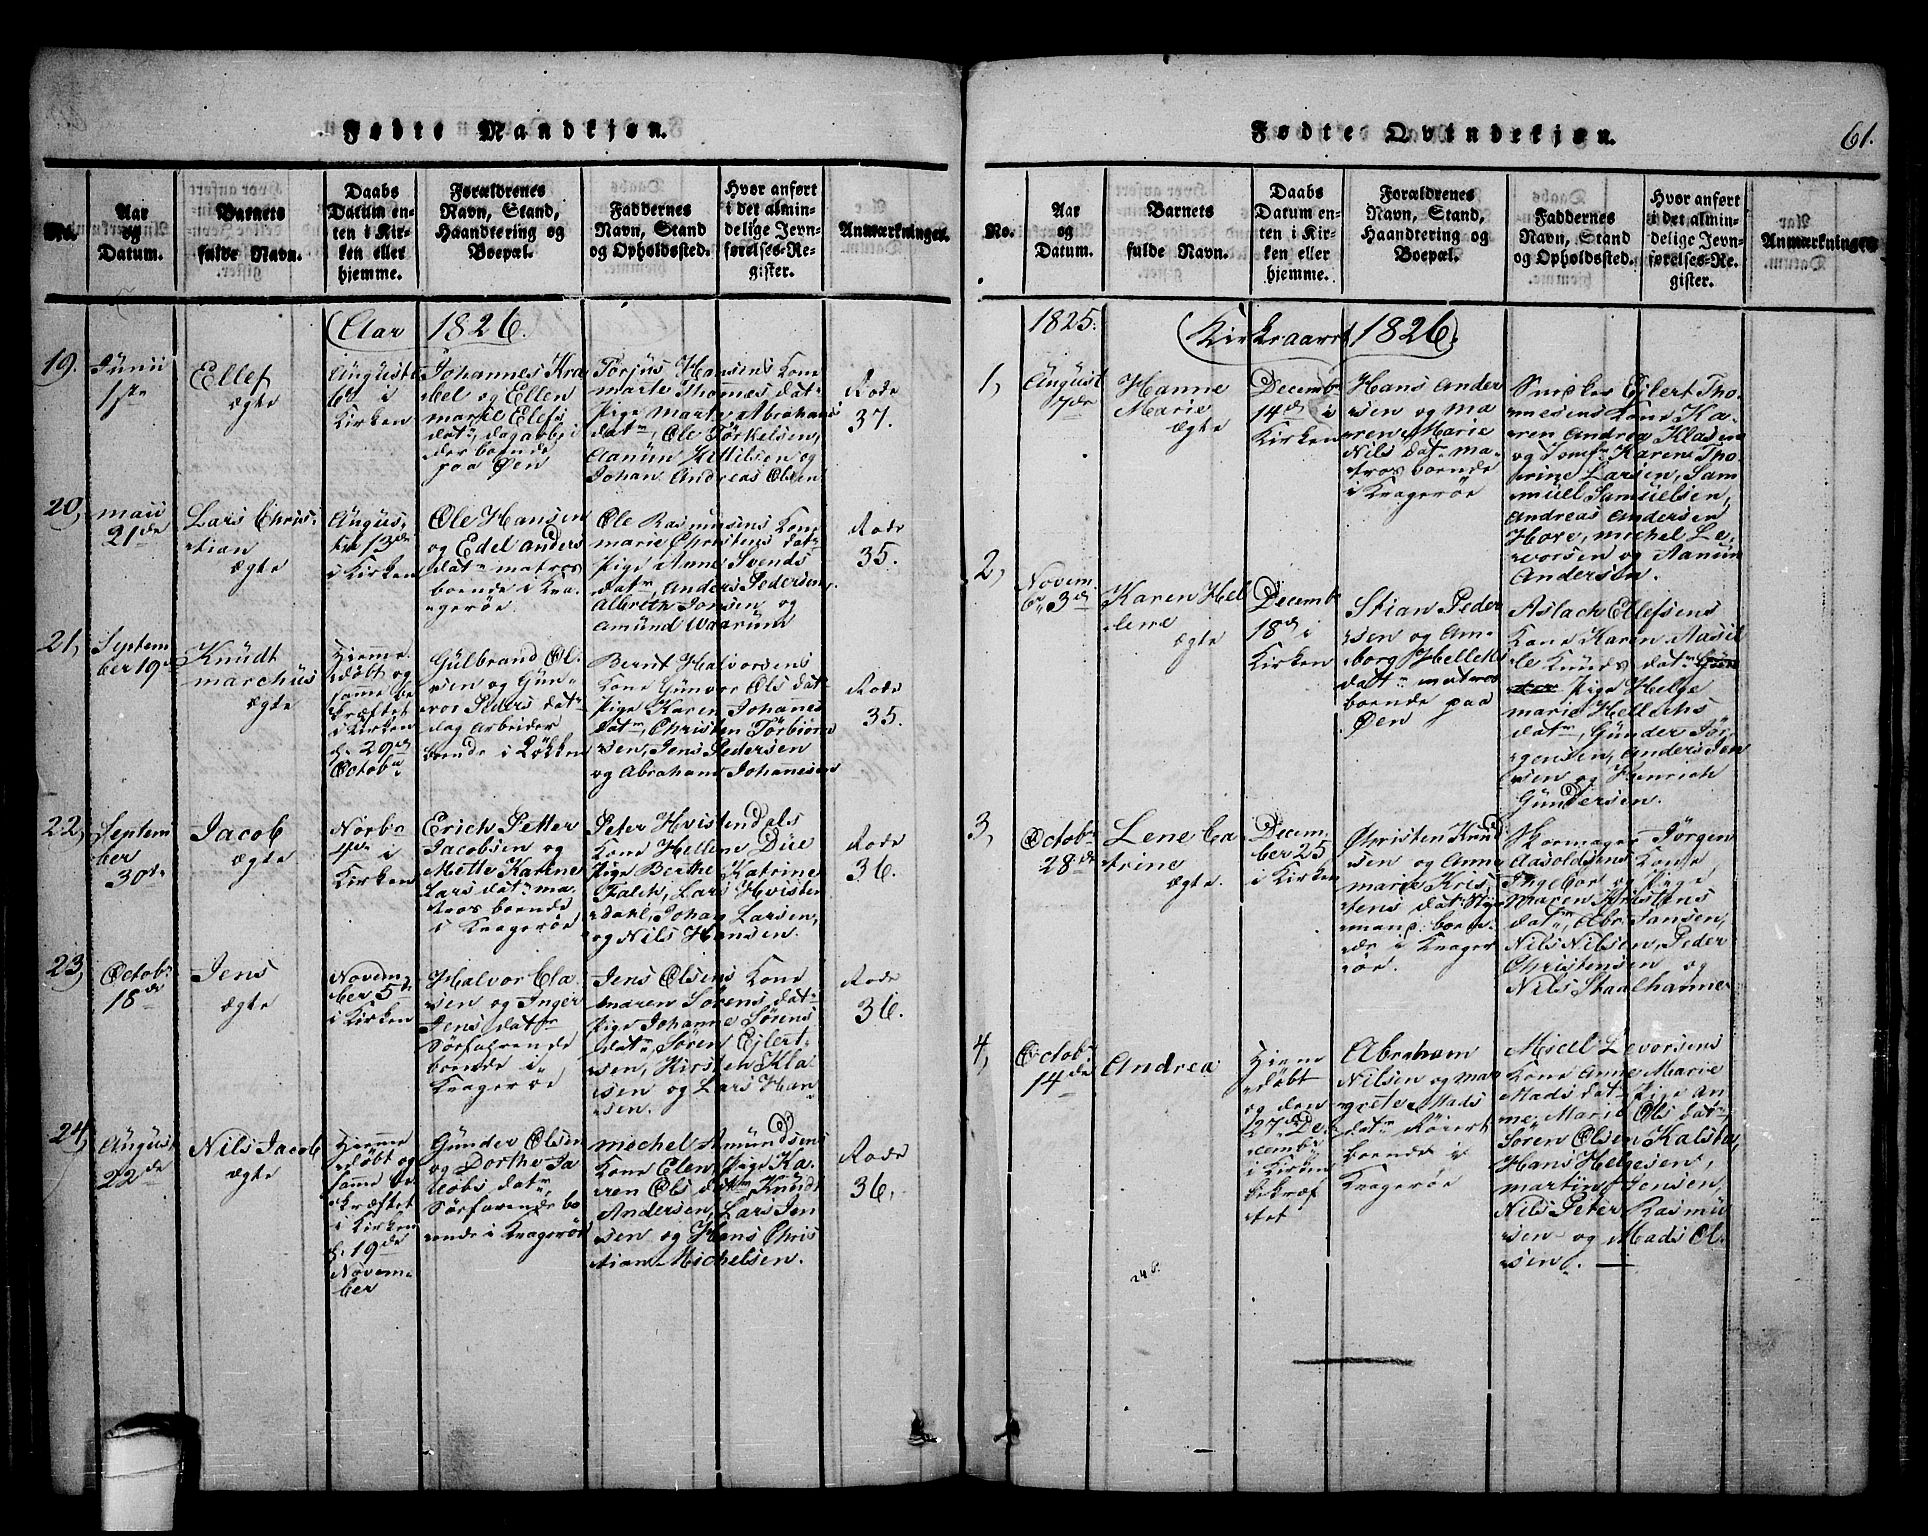 Fødte Mandkjøn.
No.
Aar
og
Datum.
Barnets
fulde Navn.
Daabs
Datum en-
ten i Kir-
ken eller
hjemme.
Forældrenes
Navn, Stand,
Haandtering og
Boepæl.
Faddernes
Navn, Stand
og Opholdssted.
Hvor anført
i det almin-
delige Jevn-
førelses-Re-
gister.
Anmærkninger.
Aar 1826.
19.
Junii
1ste
Ellef
ægte
Auguste
6te i
Kirken
Johannes Kra
bel og Ellen
marie Elefs
dattr dagarb: i
der boende
paa Øen
Torjus Hansens Kone
marte Thommes dattr
Pige Marte Abrahams
datr, Ole Törkelsen,
Aanun Kittilsen og
Johan Andreas Olsen
Rode
37.
20,
maii
21de
Lars Chris-
tian
ægte
Augus-
ti 13de
i Kirken
Ole Hansen
og Edel anders
datr matros
boende i Kra
gerøe
Ole Rasmusens Kone
marie Christens datr
Pige Anne Svends
datr, Anders Pedersen,
Albreth Jonsen og
Amund Waarum
Rode
35.
21,
Septem
ber 19de
Knudt
marchus
ægte
Hjemme
døbt og
samme be
kræftet
i Kirken
d. 29de
Octobr
Gulbrand Ol-
sen og Gun-
vor Peders datr
dag arbeider
boende i Løkken
Bernt Halvorsens
Kone Gunvor Ols datr
Pige Karen Johanes
datr, Christen Törbiörn
sen, Jens Pedersen
og Abraham Johannesen
Rode
35.
22,
Septem
ber
30te
Jacob
ægte
i
Kirken
Erich Petter
Jacobsen og
Mette Karine
Lars datr ma-
tros boende
i Kragerøe
Peter Hvistendals
Kone Hellene Düe
Pige Berthe Katrine
Falch, Lars Hvisten
dahl, Johan Larsen,
og Nils Hansen.
Rode
36.
23,
Octobr
18de
Jens
ægte
Novem-
ber 5te
i Kirken
Halvor Cla
sen og Inger
Jens datr
Sørfarende
boende i
Kragerøe
Jens Olsens Kone
maren Sørens datr
Pige Johanne Sørens
datr, Søren Ejlert-
sen, Kirsten Kla
sen og Lars Han
sen.
Rode
36.
24,
August
22de
Nils Jacob
ægte
Hjemme
døbt og
samme be
kræftet
i Kirken
d. 19de
Novem-
ber
Gunder Olsen
og Dorthe Ja
cobs datr,
Sørfarende bo
ende i Kragerøe
mechel Amundsens
Kone Elen, Pige Ka-
ren Ols datr Knudt
Andersen, Lars Jen
sen og Hans Chris
tian Michelsen.
Rode
36,
Fødte Qvindekjøn.
61.
No.
Aar
og
Datum.
Barnets
fulde Navn.
Daabs
Datum en-
ten i Kir-
ken eller
hjemme.
Forældrenes
Navn, Stand,
Haandtering og
Boepæl.
Faddernes
Navn, Stand
og Opholdssted.
Hvor anført
i det almin-
delige Jevn-
førelses-Re-
gister.
Anmærkninger
1825.
Kirkeaaret 1826.
1,
August
7de
Hanne
Marie
ægte
Decembr
14de i
Kirken
Hans Ander
sen og ma
ren Marie
Nils datr ma-
tros boende
i Kragerøe
Snicker Ejlert Tho-
mesens Kone Ka-
ren Andrea Klasen
og Jomfr Karen Tho-
rine Larsen, Sam-
muel Samuelsen,
Andreas Andersen
Hove, michel Le-
vorsen og Aanun
Andersen.
2,
Novem-
br 3de
Karen Hel
lene
ægte
Decembr
18de i
Kirken
Stian Peder
sen og An-
borg Hellechs
datr matros
boende paa
Øen
Aslach Ellefsens
Kone Karen Aasil
le Knuds datr
Pige Helge
marie Hellechs
datr, Gunder Jör-
gensen, Anders Jen
sen og Henrich
Gundersen.
3,
Octobr
28de
Lene Ca-
trine
ægte.
Decem-
ber 25
i Kirken
Christen Knud
sen og Anne
marie Kris
tens datr Sty
mand boen-
de i Krager
øe.
Skormager Jörgen
Aasoldsens Kone
Ingebor og Pige
Maren Kristens
datr, Abr: Jansen,
Nils Nilsen, Peder
Christensen og
Nils Staalhanne
4,
Octobr
14de
Andrea
Hjeme
døbt
og den
27de De-
cembr
i Kirken
bekræf
tet
Abraham
Nilsen og mar
grete Mads
datr Röiert
boende i
Kragerøe
Micel Levorsens
Kone Anne Marie
Mads datr Pige An
ne Marie Ols datr,
Sören Olsen Kalstad,
Hans Helgesen,
martin Jensen,
Nils Peter Rasmu
sen og Mads Ol-
sen.
248.